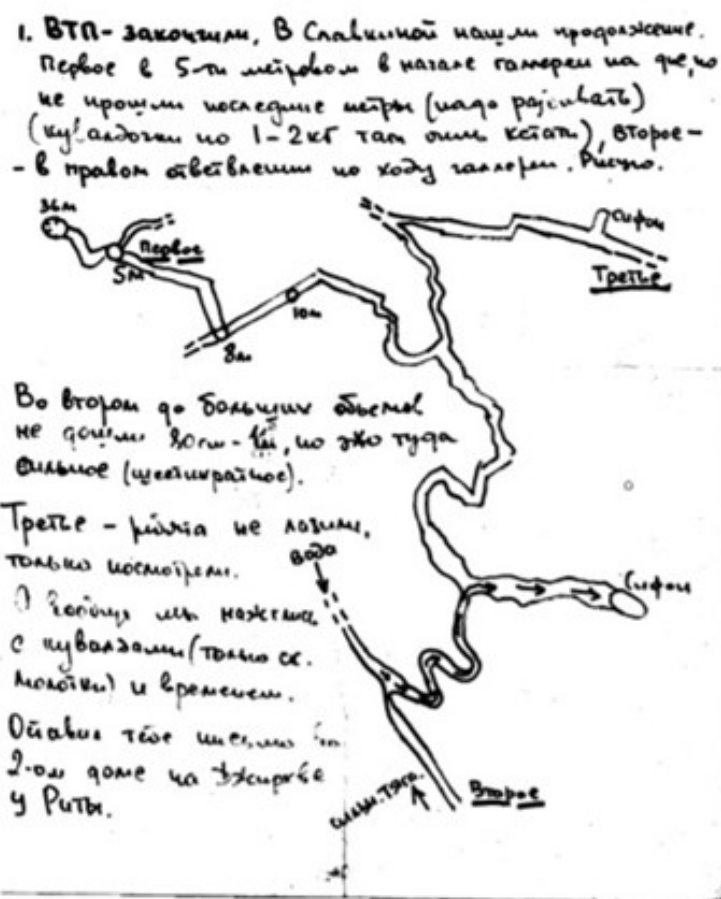 1. ВТП - закончили. В Славкиной нашли продолжение.
Первое в 5-ти метровом в начале галлереи на дне, но
не прошли последние метры (надо разбивать)
(кувалдочки по 1-2кг там очень кстати), второе -
- в правом ответвлении по ходу галлереи.
36м
Первое
5м
8м
10м
Сифон
Третье
Во втором до больших объемов
не дошли 80см - 1м, но эхо туда
сильное (шестикратное).
Третье - не лазили,
только посмотрели.
Вода
мы нажглись
с кувалдами (только ск.
молотки) и временем.
Сифон
Оставил тебе письмо
2-ом доме на
у Риты.
Второе